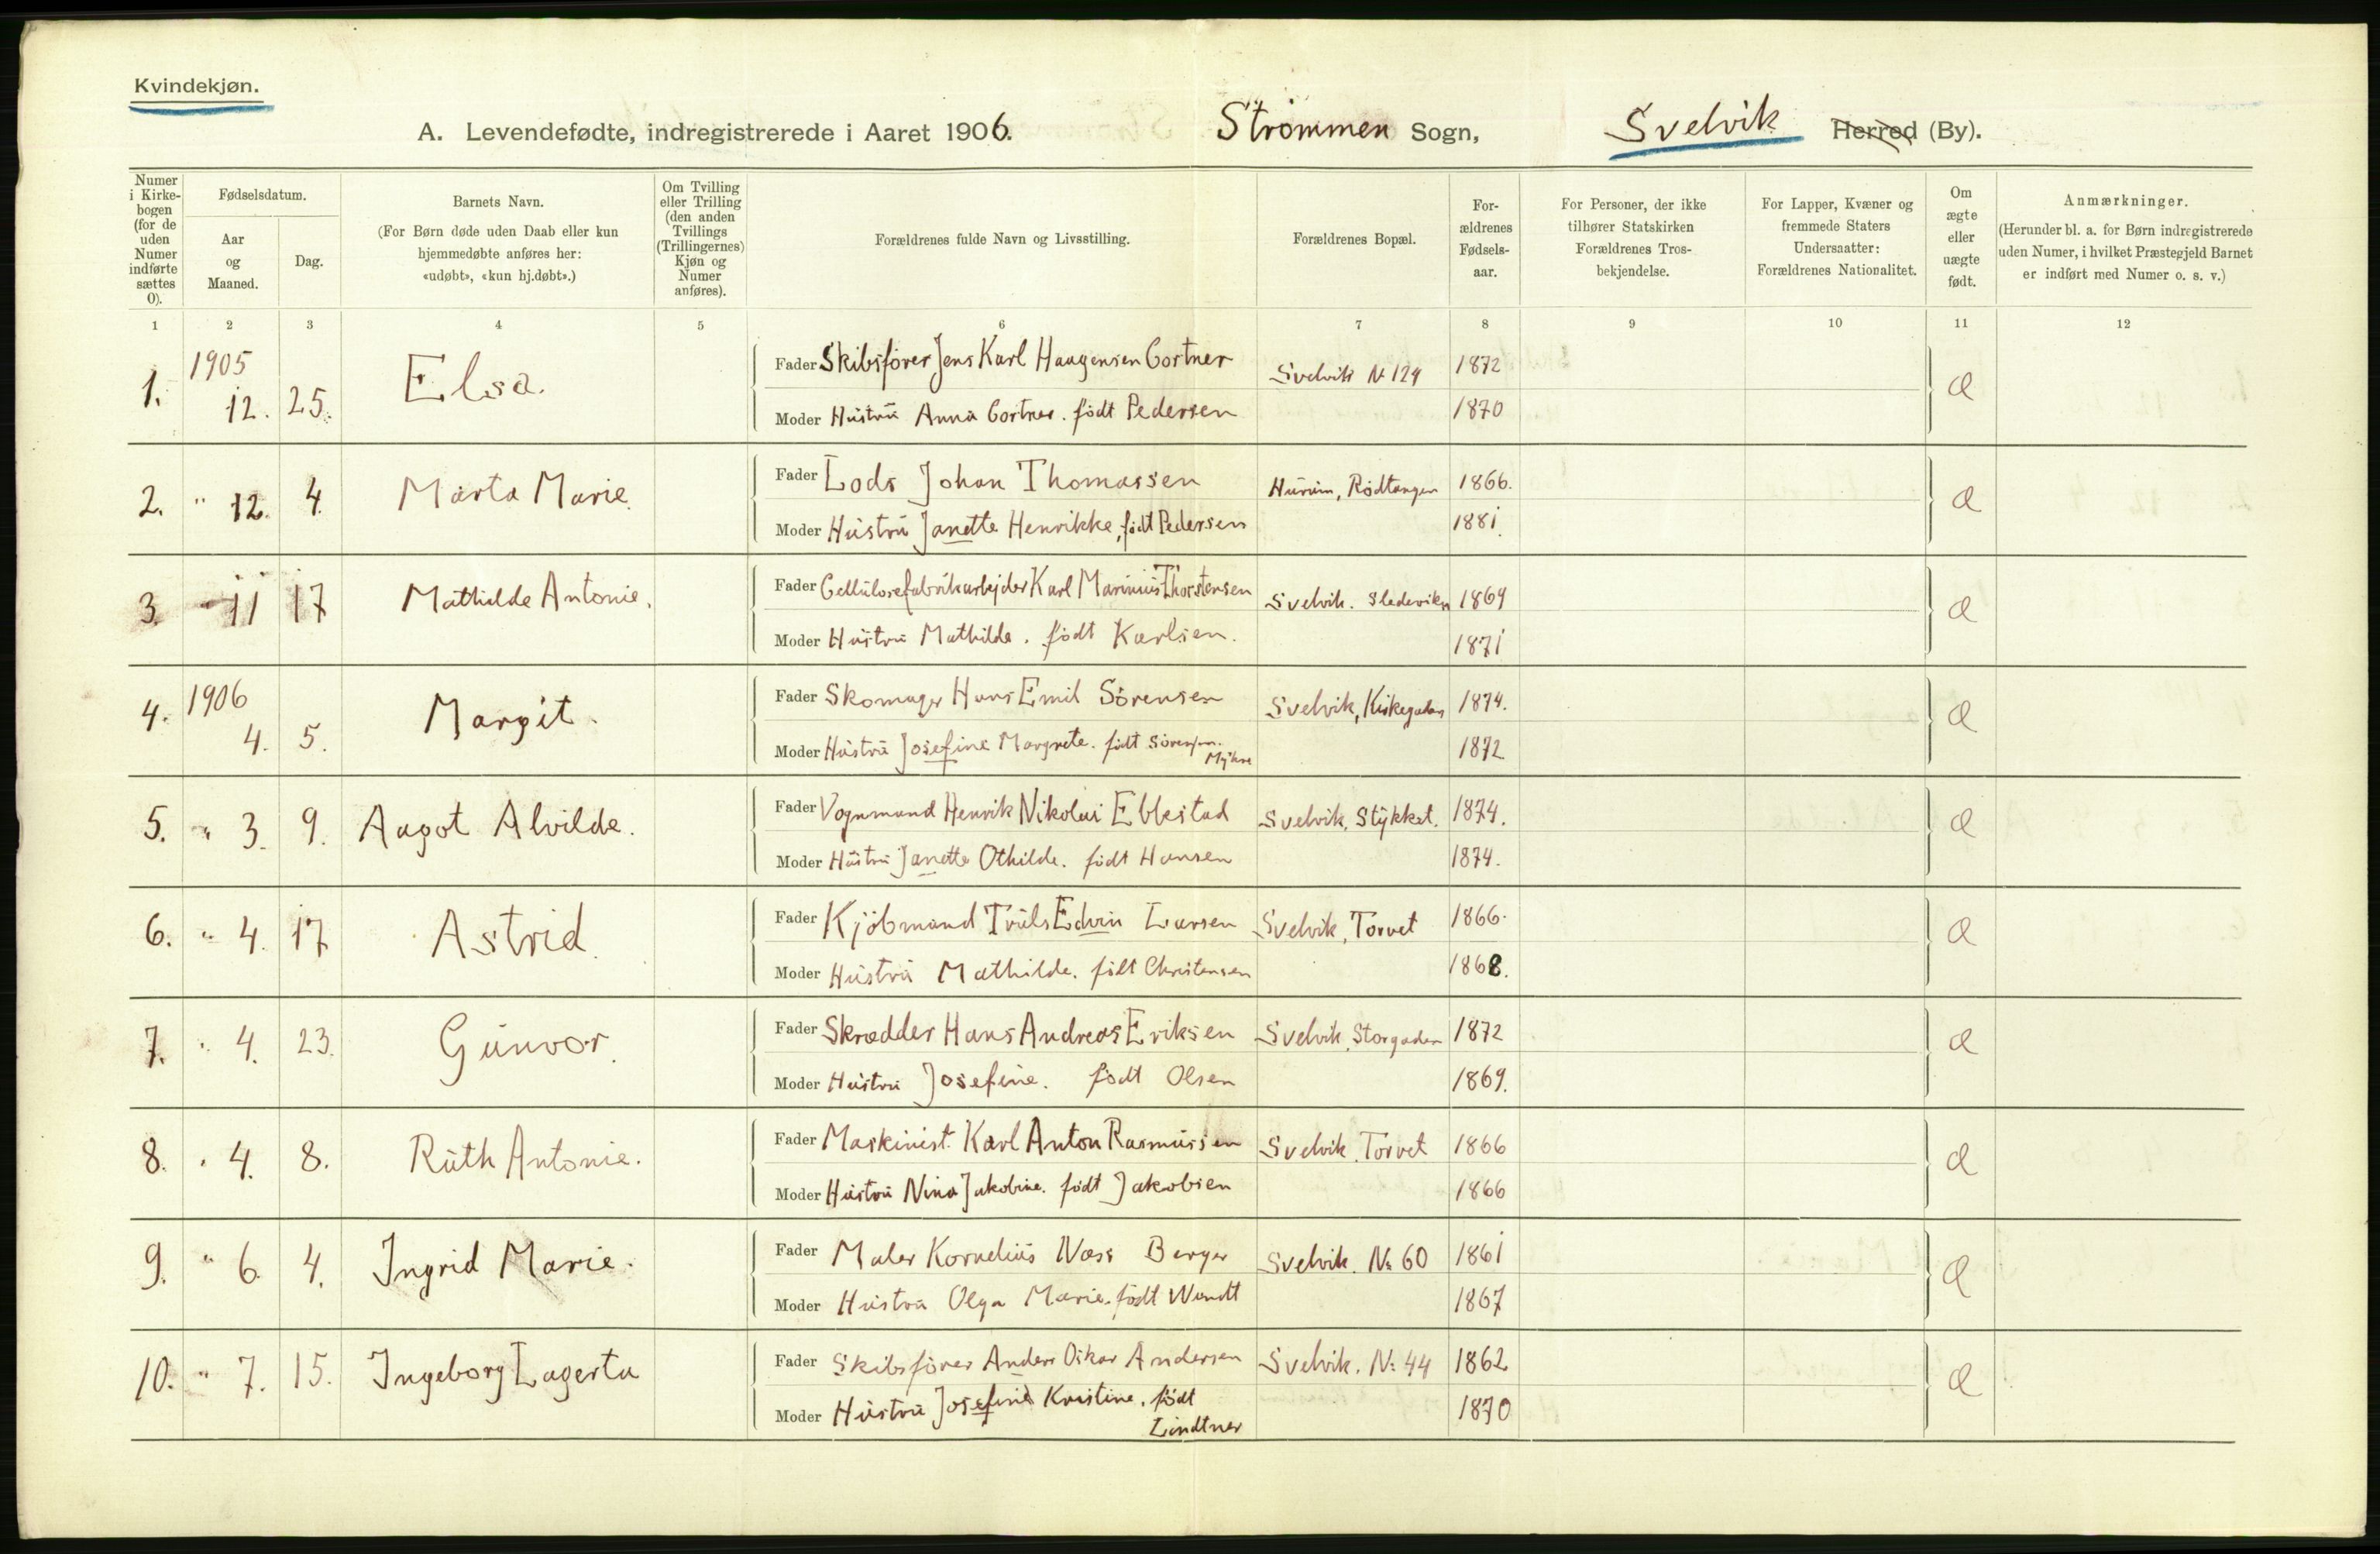 Kvindekjøn.
A. Levendefødte, indregistrerede i Aaret 1906. Strömmen Sogn, Svelvik Herred (By).
Numer i Kirkebogen (for de uden Numer indførte sættes 0).
Fødselsdatum.
Aar og Maaned.
Dag.
Barnets Navn.
(For Børn døde uden Daab eller kun
hjemmedøbte anføres her:
«udøbt», «kun hj.døbt».)
Om Tvilling
eller Trilling
(den anden
Tvillings
(Trillingernes)
Kjøn og
Numer
anføres).
Forældrenes fulde Navn og Livsstilling.
Forældrenes Bopæl.
For-
ældrenes
Fødsels-
aar.
For Personer, der ikke
tilhører Statskirken
Forældrenes Tros-
bekjendelse.
For Lapper, Kvæner og
fremmede Staters
Undersaatter:
Forældrenes Nationalitet.
Om
ægte
eller
uægte
født.
Anmærkninger.
(Herunder bl. a. for Børn indregistrerede
uden Numer, i hvilket Præstegjeld Barnet
er indført med Numer o. s. v.)
1 2 3 4 5 6 7 8 9 10 11 12
1. 1905 12. 25. Elsa. Fader Skibsförer Jens Karl Haagensen Cortner Svelvik № 124 1872 Æ
Moder Hustru Anna Cortner. födt Pedersen 1870
2. " 12. 4. Marta Marie. Fader Lods Johan Thomassen Hurum, Rödtangen 1866. Æ
Moder Hustru Janette Henrikke, födt Pedersen 1881.
3. " 11 17 Mathilde Antonie. Fader Cellulosefabrikarbejder Karl Marinius Thorstensen Svelvik. Sledeviken 1869 Æ
Moder Hustru Mathilde. födt Karlsen. 1871
4. 1906 4. 5. Margit. Fader Skomager Hans Emil Sörensen Svelvik, Kirkegaden 1874. Æ
Moder Hustru Josefine Margrete. födt Sörensen. 1872
5. " 3. 9. Aagot Alvilde. Fader Vognmand Henrik Nikolai Ebbestad Svelvik, Stykket. 1874. Æ
Moder Hustru Janette Othilde. födt Hansen 1874.
6. " 4. 17 Astrid. Fader Kjöbmand Truls Edvin Larsen Svelvik, Torvet 1866. Æ
Moder Hustru Mathilde. födt Christensen 1868.
7. " 4. 23. Gunvor. Fader Skrædder Hans Andreas Eriksen Svelvik, Storgaden 1872 Æ
Moder Hustru Josefine. födt Olsen 1869.
8. " 4. 8. Ruth Antonie. Fader Maskinist. Karl Anton Rasmussen Svelvik, Torvet 1866 Æ
Moder Hustru Nina Jakobine. födt Jakobsen 1866
9. " 6. 4. Ingrid Marie. Fader Maler Kornelius Næss Berger Svelvik. № 60 1861 Æ
Moder Hustru Olga Marie. födt Wendt 1867
10. " 7. 15. Ingeborg Lagerta Fader Skibsförer Anders Oskar Andersen Svelvik. №: 44 1862 Æ
Moder Hustru Josefine Kristine. födt 1870
Lindtner